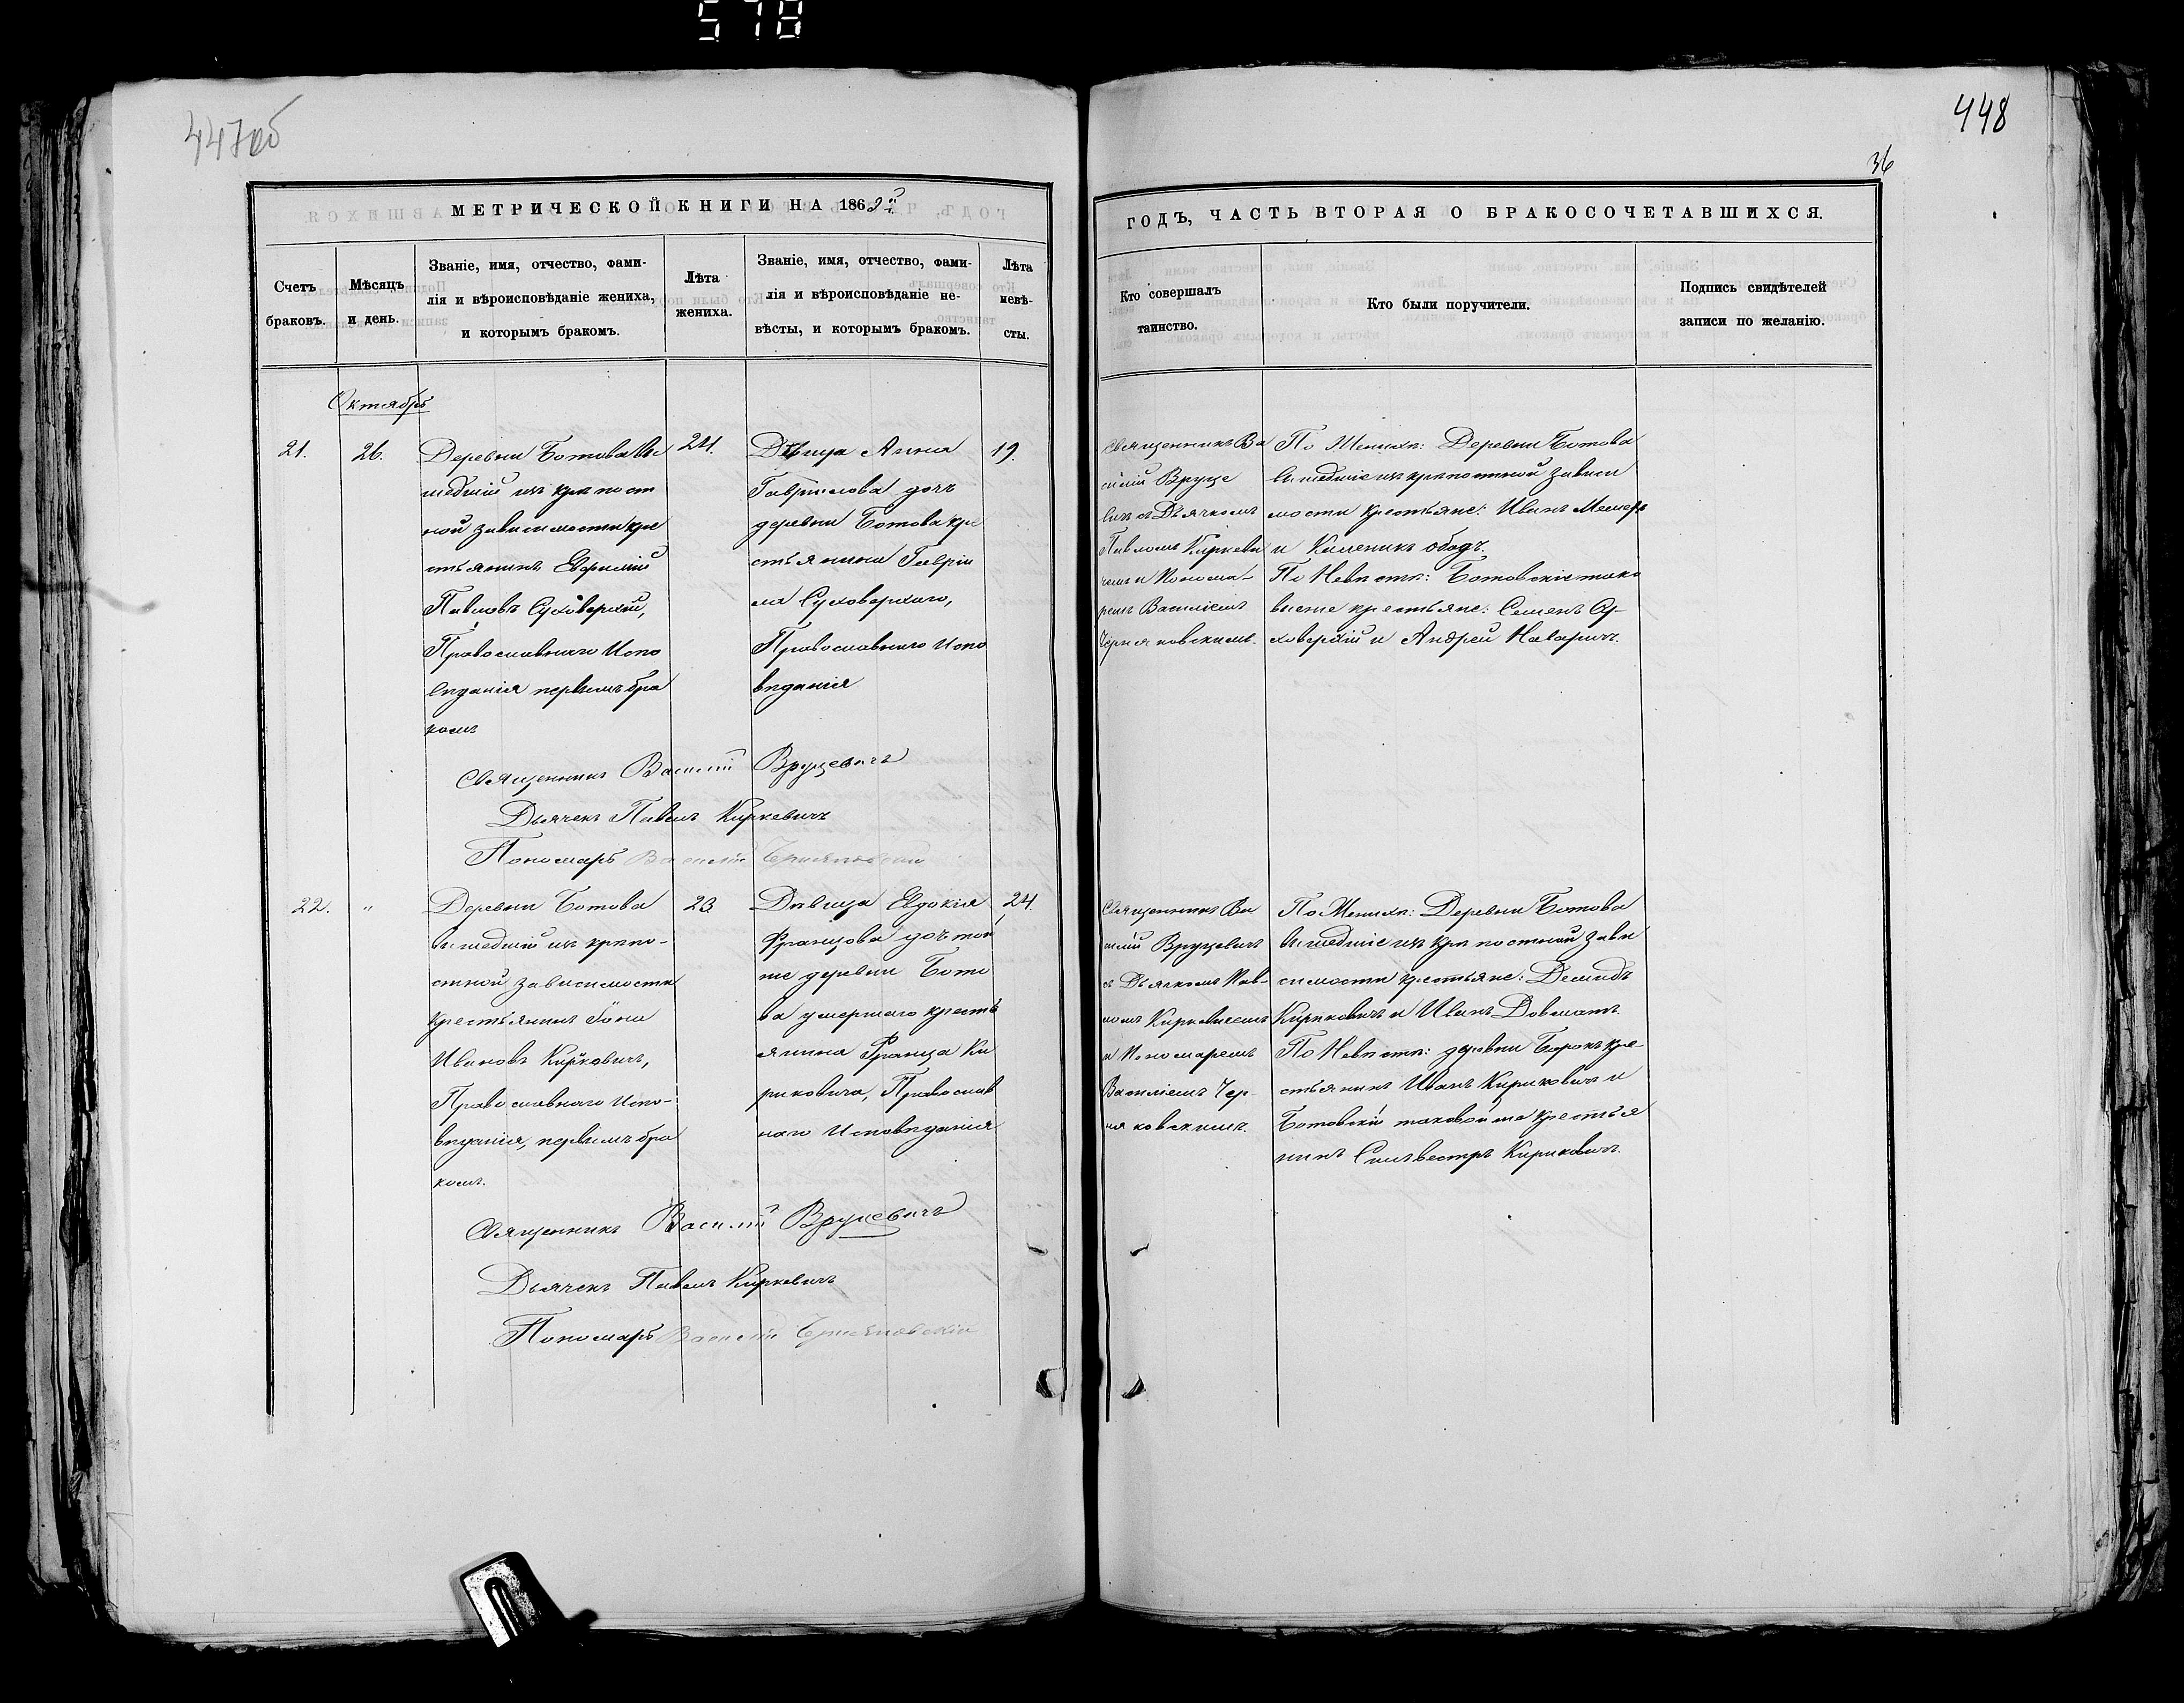 578
447об
448
36
МЕТРИЧЕСКОЙ КНИГИ НА 1862й
ГОДЪ, ЧАСТЬ ВТОРАЯ О БРАКОСОЧЕТАВШИХСЯ.
Счетъ
браковъ.
Мѣсяцъ
и день.
Званіе, имя, отчество, фами-
лія и вѣроисповѣданіе жениха,
и которымъ бракомъ.
Лѣта
жениха.
Званіе, имя, отчество, фами-
лія и вѣроисповѣданіе не-
вѣсты, и которымъ бракомъ.
Лѣта
невѣ-
сты.
Кто совершалъ
таинство.
Кто были поручители.
Подпись свидѣтелей
записи по желанію.
Октябрь
21.
26.
Деревни Ботова Вы
шедшій изъ крѣпост
ной зависимости кре
стьянинъ Ефимій
Павловъ Суховерхій,
Православнаго Испо
вѣданія первымъ бра
комъ
24.
Дѣвица Анна
Гавріилова дочь
деревни Ботова кре
стьянина Гавріи
ла Суховерхаго,
Православнаго Испо
вѣданія
19.
Священникъ Ва
силій Вруце
вичъ съ Дьячкомъ
Павломъ Киркеви
чемъ и Понома-
ремъ Василіемъ
Черняковскимъ.
По Женихѣ: Деревни Ботова
вышедшіе изъ крѣпостной зависи
мости крестьяне: Иванъ
и
По Невѣстѣ: Ботовскіе тако
вые же крестьяне: Семенъ Су-
ховерхій и Андрей Назаричъ.
Священникъ Василій Вруцевичъ
Дьячекъ Павелъ Киркевичъ
Пономарь Василій Черняковскій
22.
"
Деревни Ботова
Вышедшій изъ крѣпо-
стной зависимости
крестьянинъ Іона
Ивановъ Кириковичъ,
Православнаго Испо-
вѣданія, первымъ бра
комъ.
23.
Дѣвица Евдокія
Францова дочь той
же деревни Бото
ва умершаго кресть
янина Франца Ки
риковича, Православ
наго Исповѣданія
24.
Священникъ Ва
силій Вруцевичъ
съ Дьячкомъ Пав-
ломъ Киркевичемъ
и Пономаремъ
Василіемъ Чер-
няковскимъ.
По Женихѣ: Деревни Ботова
Вышедшіе изъ крѣпостной зави
симости крестьяне: Демидъ
Кириковичъ и Иванъ Довматъ.
По Невѣстѣ: деревни Борокъ кре-
стьянинъ Иванъ Кириковичъ и
Ботовскій таковой же крестья
нинъ Сильвестръ Кириковичъ.
Священникъ Василій Вруцевичъ
Дьячекъ Павелъ Киркевичъ
Пономарь Василій Черняковскій